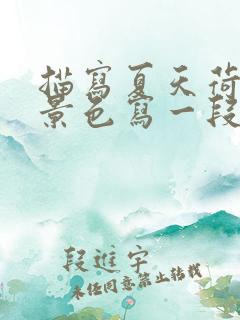 描寫夏天荷
景色寫一段
段進宇
未經同意禁止轉載